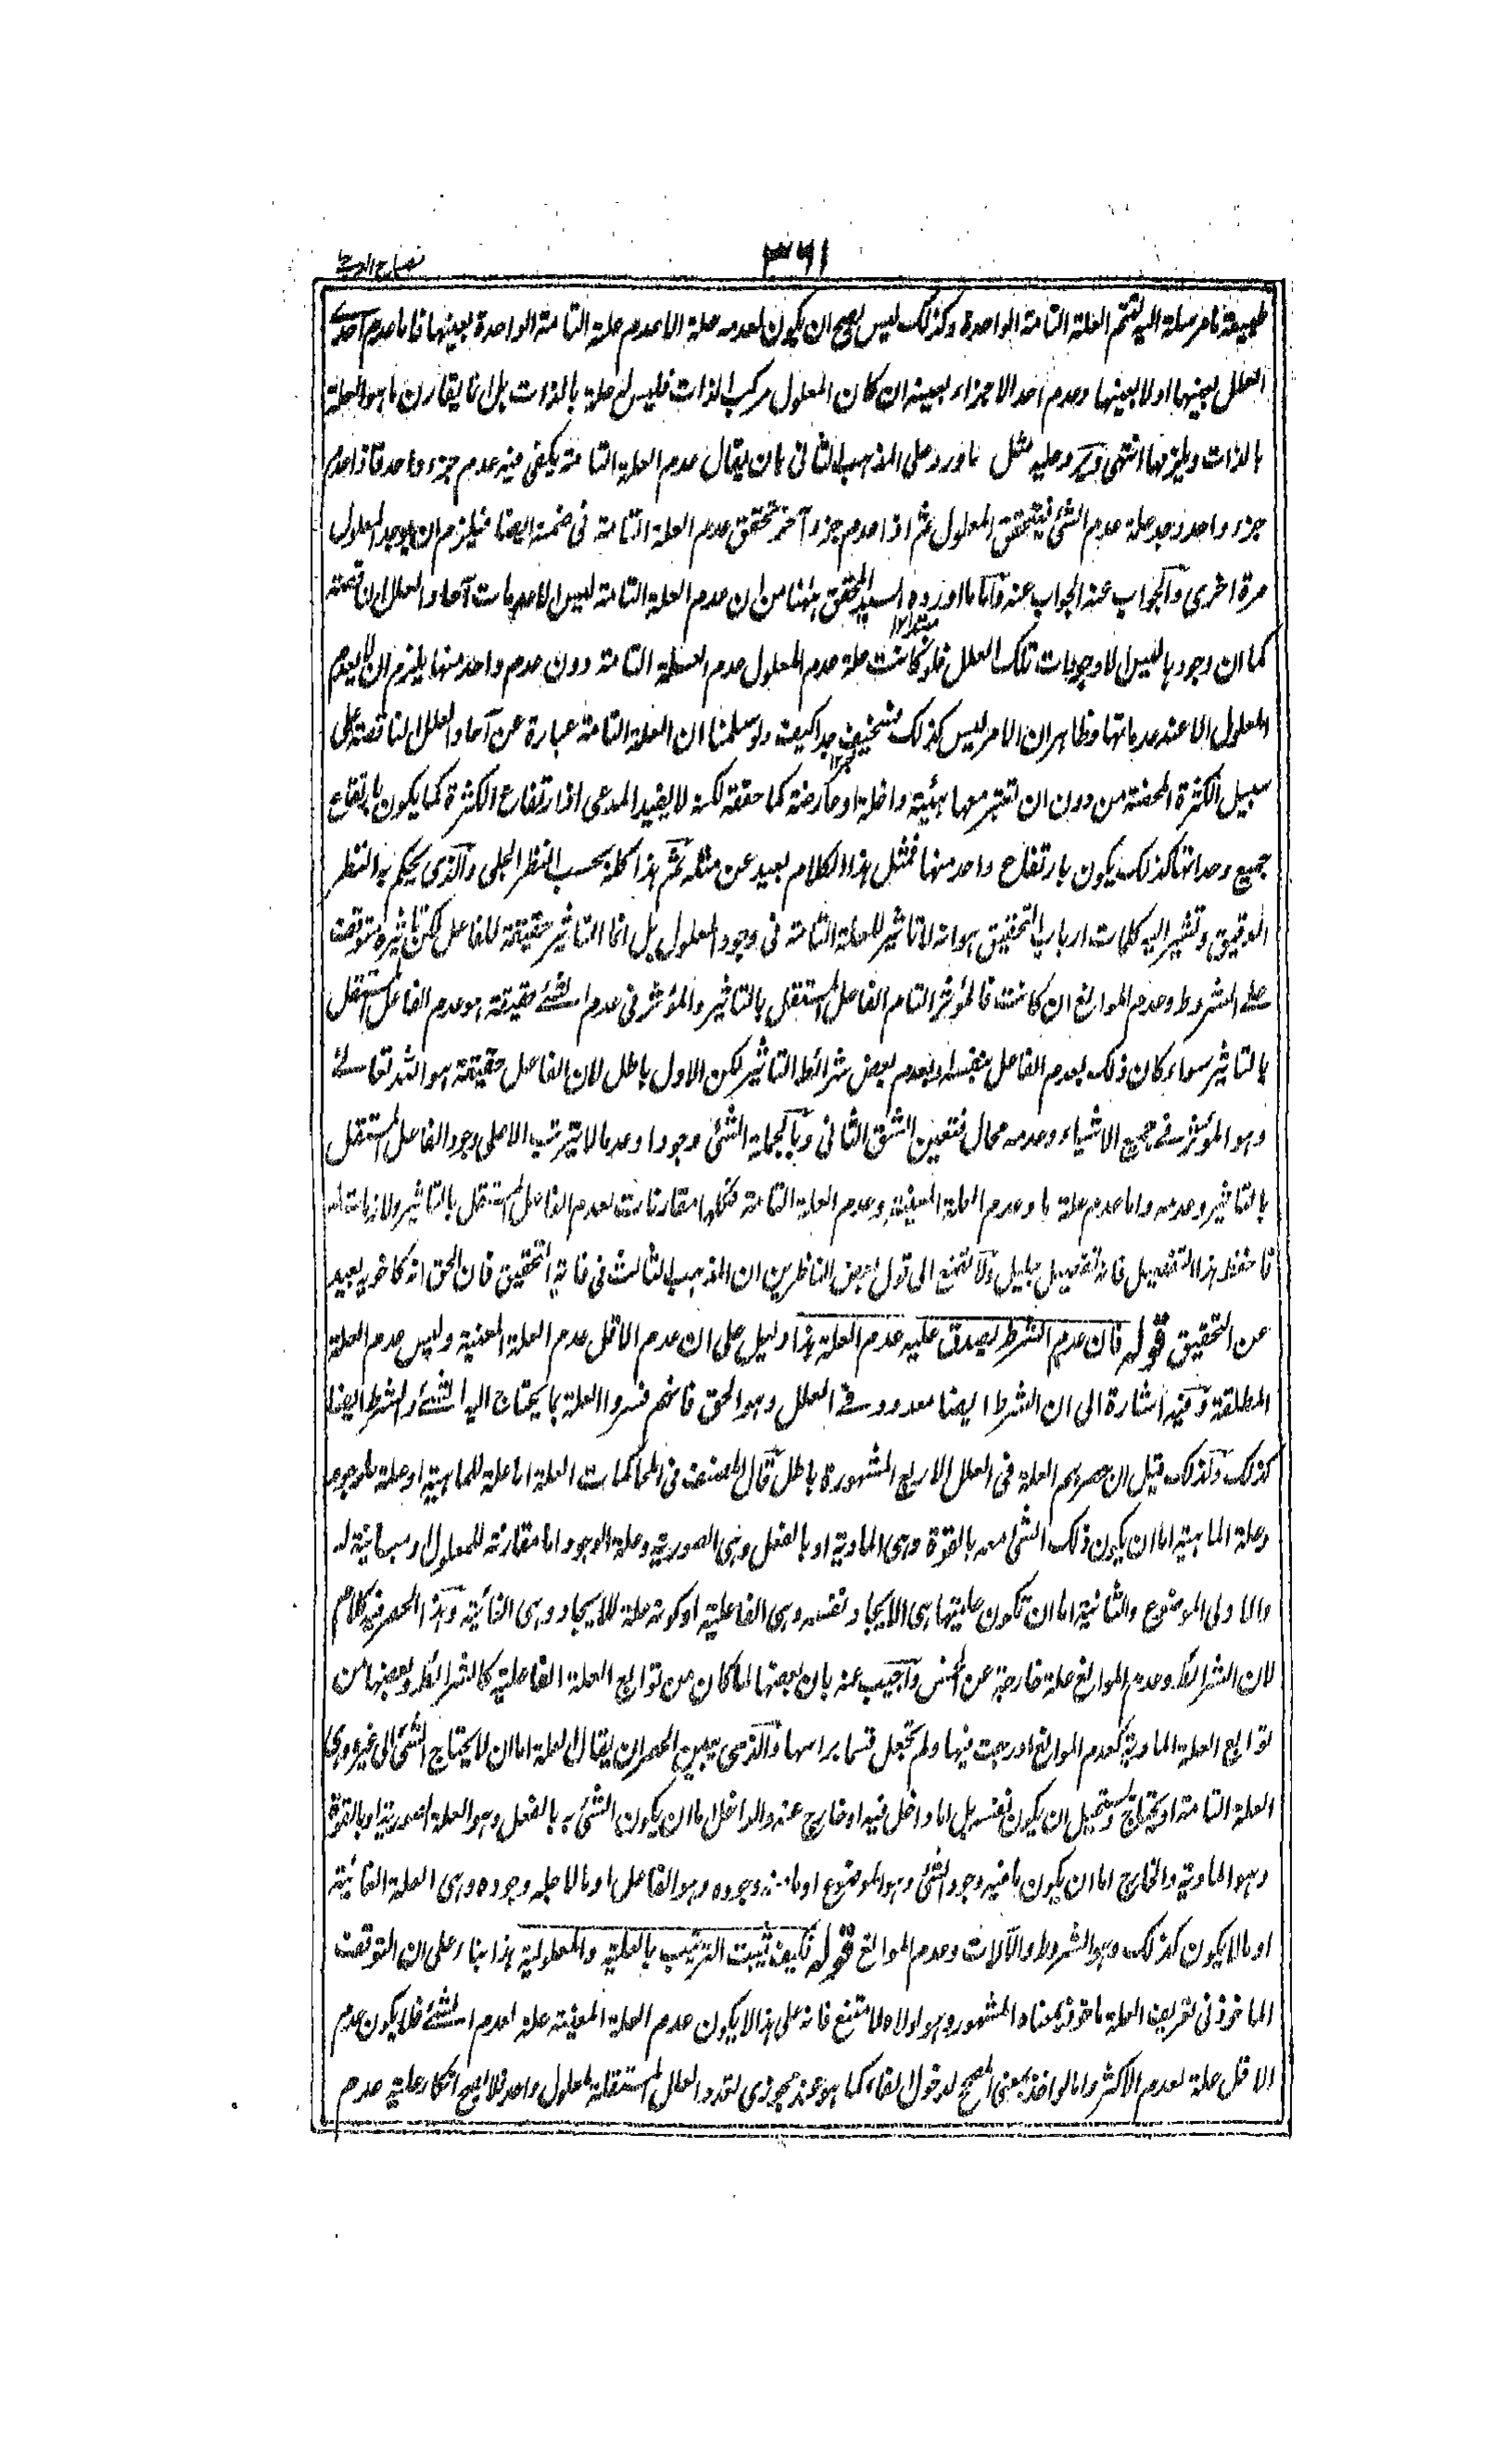 ٣٦١
مصباح الدجى
طبيعة ما مرسلة اليه لتتم العلة التامة الواحدة وكذلك ليس يصح ان يكون لعدمه علة الا عدم علة التامة الواحدة بعينها فاما عدم احدى
العلل بعينها او لا بعينها وعدم احد الاجزاء بعينه ان كان المعلول مركب الذات فليس له علة بالذات بل انما يقارن ما هو العلة
بالذات ويلزمها انتهى ويرد عليه مثل ما ورد على المذهب الثانى بان يقال عدم العلة التامة يكفى فيه عدم جزء واحد فاذا عدم
جزء واحد وجد علة عدم الشئ فيتحقق المعلول ثم اذا عدم جزء آخر تحقق عدم العلة التامة فى ضمنه ايضا فيلزم ان يوجد المعلول
مرة اخرى والجواب عنه الجواب عنه واما ما اورده السيد المحقق ههنا من ان عدم العلة التامة ليس الا عدمات آحاد العلل الناقصة
كما ان وجودها ليس الا وجودات تلك العلل فلو كانت علة عدم المعلول عدم العلة التامة دون عدم واحد منها يلزم ان لا يعدم
المعلول الا عند عدماتها وظاهر ان الامر ليس كذلك فسخيف جدا كيف ولو سلمنا ان العلة التامة عبارة عن آحاد العلل الناقصة على
سبيل الكثرة المحضة من دون ان تعتبر معها هيئة داخلة او عارضة كما حققه لكنه لا يفيد المدعى اذ ارتفاع الكثرة كما يكون بارتفاع
جميع وحداتها كذلك يكون بارتفاع واحد منها فمثل هذا الكلام بعيد عن مثله ثم هذا كله بحسب النظر الجلى والذى يحكم به النظر
الدقيق وتشير اليه كلمات ارباب التحقيق هو انه لا تاثير للعلة التامة فى وجود المعلول بل انما التاثير حقيقة للفاعل لكن تاثيره متوقف
على الشروط وعدم الموانع ان كانت فالمؤثر التام الفاعل المستقل بالتاثير والمؤثر فى عدم الشئ حقيقة هو عدم الفاعل المستقل
بالتاثير سواء كان ذلك بعدم الفاعل بنفسه او بعدم بعض شرائط التاثير لكن الاول باطل لان الفاعل حقيقة هو الله تعالى
وهو المؤثر فى جميع الاشياء وعدمه محال فتعين الشق الثانى وبالجملة الشئ وجودا وعدما لا يترتب الا على وجود الفاعل المستقل
بالتاثير وعدمه واما عدم علة ما وعدم العلة المعينة وعدم العلة التامة فكلها مقارنات لعدم الفاعل المستقل بالتاثير ولازمات له
فاحفظ هذا التفصيل فانه تفصيل جليل ولا تصغ الى قول بعض الناظرين ان المذهب الثالث فى غاية التحقيق فان الحق انه كاخويه بعيد
عن التحقيق قوله فان عدم الشرط يصدق عليه عدم العلة هذا دليل على ان عدم الاقل عدم العلة المعينة وليس عدم العلة
المطلقة وفيه اشارة الى ان الشرط ايضا معدود فى العلل وهو الحق فانهم فسروا العلة بما يحتاج اليه الشئ والشرط ايضا
كذلك ولذلك قيل ان حصرهم العلة فى العلل الاربع المشهورة باطل قال المصنف فى المحاكمات العلة اما علة للماهية او علة للوجود
وعلة الماهية اما ان يكون ذلك الشئ معه بالقوة وهى المادية او بالفعل وهى الصورية وعلة الوجود اما مقارنة للمعلول او مباينة له
والاولى الموضوع والثانية اما ان تكون عليتها هى الايجاد نفسه وهى الفاعلية او كونه علة للايجاد وهى الغائية وهذا الحصر فيه كلام
لان الشرائط وعدم الموانع علة خارجة عن الخمس واجيب عنه بان بعضها لما كان من توابع العلة الفاعلية كالشرائط وبعضها من
توابع العلة المادية كعدم الموانع ادرجت فيها ولم تجعل قسما براسها والذى يبين الحصر ان يقال العلة اما ان لا يحتاج الشئ الى غيره وهى
العلة التامة او يحتاج ويستحيل ان يكون نفسه بل اما داخل فيه او خارج عنه والداخل اما ان يكون الشئ به بالفعل وهو العلة الصورية او بالقوة
وهو المادية والخارج اما ان يكون ما فيه وجود الشئ وهو الموضوع او ما منه وجوده وهو الفاعل او ما لاجله وجوده وهى العلة الغائية
او ما لا يكون كذلك وهو الشروط والآلات وعدم الموانع قوله فكيف تثبت الترتيب بالعلية والمعلولية هذا بناء على ان التوقف
الماخوذ فى تعريف العلة ماخوذ بمعناه المشهور وهو لولاه لامتنع فانه على هذا لا يكون عدم العلة المعينة علة لعدم الشئ فلا يكون عدم
الاقل علة لعدم الاكثر واما لو اخذ بمعنى المصحح لدخول الفاء كما هو عند مجوزى تعدد العلل المستقلة لمعلول واحد فلا يصح انكار علية عدم